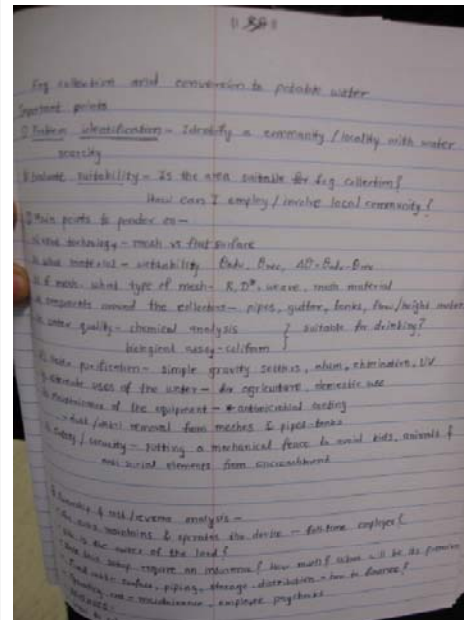 Fog collection and conversion to potable water
Important points
1) Problem identification - Identify a community / locality with water
scarcity
2) Evaluate suitability - Is the area suitable for fog collection?
How can I employ / involve local community?
3) Main points to ponder on -
technology - mesh vs flat surface
what material - wettability θadv, θrec, Δθ = θadv - θrec
if mesh, what type of mesh - R, D*, weave, mesh material
components around the collector - pipes, gutter, tanks, flow/height meter
water quality - chemical analysis } suitable for drinking?
biological assay - coliform
water purification - simple gravity settlers, alum, chlorination, UV
uses of the water - for agriculture, domestic use
Maintenance of the equipment - antimicrobial coating
removal from meshes & pipes-tanks
Safety / security - putting a mechanical fence to avoid kids, animals &
anti social elements from
Ownership & cost/revenue analysis -
maintains & operates the device - full-time employee?
is the owner of the land?
this setup require an insurance? How much? What will be its premium
cost: surface, piping, storage, distribution - how to finance?
cost = maintenance, employee paychecks